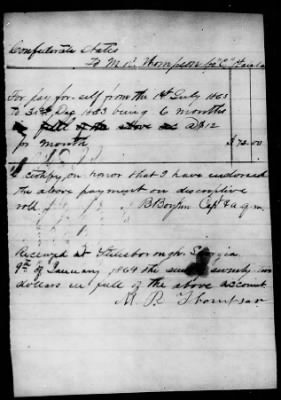 Confederate States
To M R Thompson
For pay for self from the 1st July 1863
to 31st Dec 1863 being 6 months
full of the above at $12
per month $72.00
I certify, on honor that I have endorsed
the above payment on discriptive
roll. Capt & aqm.
Received at Georgia
9th of January 1864 the sum seventy two
dollars in full of the above account
M. R. Thompson